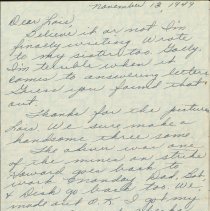 November 13, 1949
Dear Lois,
Believe it or not I'm
finally writing. Wrote
to my sister too. Golly,
I'm terrible when it
comes to answering letters
Guess you found that
out.
Thanks for the picture
Lois. We sure make a
handsome three some.
The silver was one
of the mines on strike
Howard goes back to
work Monday. Dad, Got.
& Dick go back too. We
made out O.K. I got my